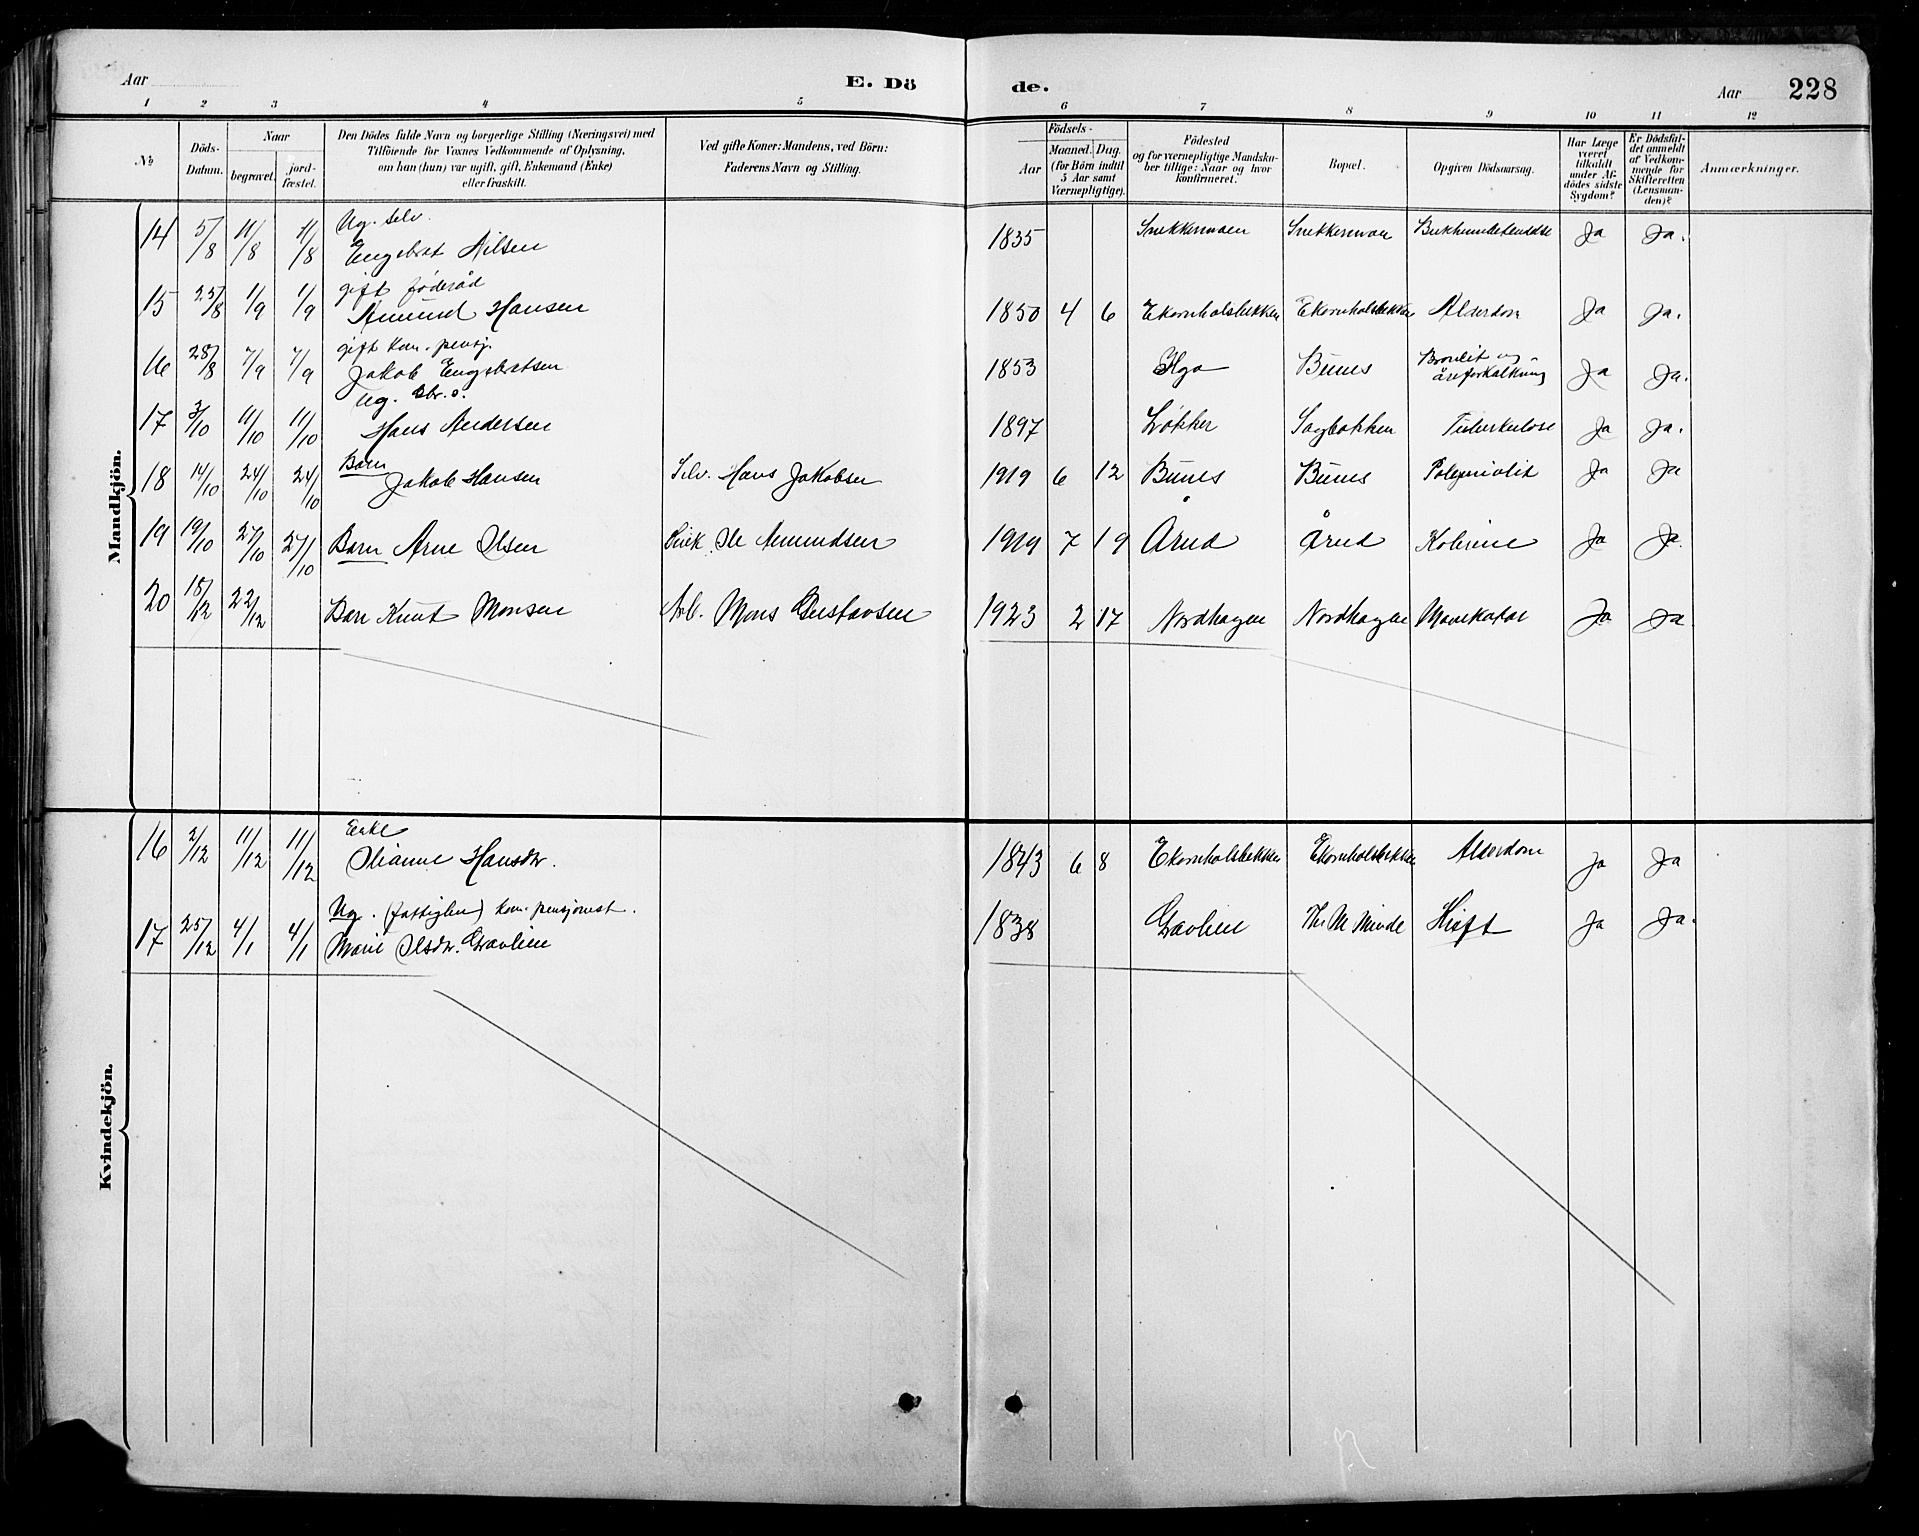 Aar E. Dö de. Aar 228
1 2 3 4 5 6 7 8 9 10 11 12
No
Döds-Datum.
Naar
begravet.
jord-fæstet.
Den Dödes fulde Navn og borgerlige Stilling (Næringsvei) med
Tilföiende for Voxnes Vedkommende af Oplysning,
om han (hun) var ugift, gift, Enkemand (Enke)
eller fraskilt.
Ved gifte Koner: Mandens, ved Börn:
Faderens Navn og Stilling.
Födsels-
Aar
Maaned. Dag.
(for Börn indtil
5 Aar samt
Værnepligtige).
Födested
og for værnepligtige Mandska-
ber tillige: Naar og hvor
konfirmeret.
Bopæl.
Opgiven Dödsaarsag.
Har Læge
været
tilkaldt
under Af-
dödes sidste
Sygdom?
Er Dödsfal-
det anmeldt
af Vedkom-
mende for
Skifteretten
(Lensman-
den)?
Anmærkninger.
Mandkjön.
Ug. Selv.
14 5/8 11/8 11/8 Engebret Nilsen 1835 Snekkermoen Snekkermoen Ja Ja.
gift føderåd
15 25/8 1/9 1/9 Amund Hansen 1850 4 6 Ekornholsbekken Ekornholsbekken Alderdom Ja Ja.
gift kom. pensj.
16 28/8 7/9 7/9 Jakob Engebretsen 1853 Hgo Bunes Bronkit og åreforkalkning Ja Ja.
Ug. Gbr. s.
17 3/10 11/10 11/10 Hans Andersen 1897 Løkker Sagbakken Tuberkulose Ja Ja.
Barn
18 14/10 24/10 24/10 Jakob Hansen Selv. Hans Jakobsen 1919 6 12 Bunes Bunes Ja Ja
19 19/10 27/10 27/10 Barn Arne Olsen Ole Amundsen 1919 7 19 Årud Årud Kolerine Ja Ja.
20 18/12 22/12 Barn Knut Monsen Arb. Mons Gustavsen 1923 2 17 Nordhagen Nordhagen Mavekatar Ja Ja
Kvindekjön.
Enke
16 2/12 11/12 11/12 Olianne Hansdtr. 1843 6 8 Ekornholsbekken Ekornholsbekken Alderdom Ja Ja
Ug. (fattiglem) kom. pensjonist.
17 25/12 4/1 4/1 Marie Olsdtr. Gravlien 1838 Gravlien Th. M. Minde Kræft Ja Ja.